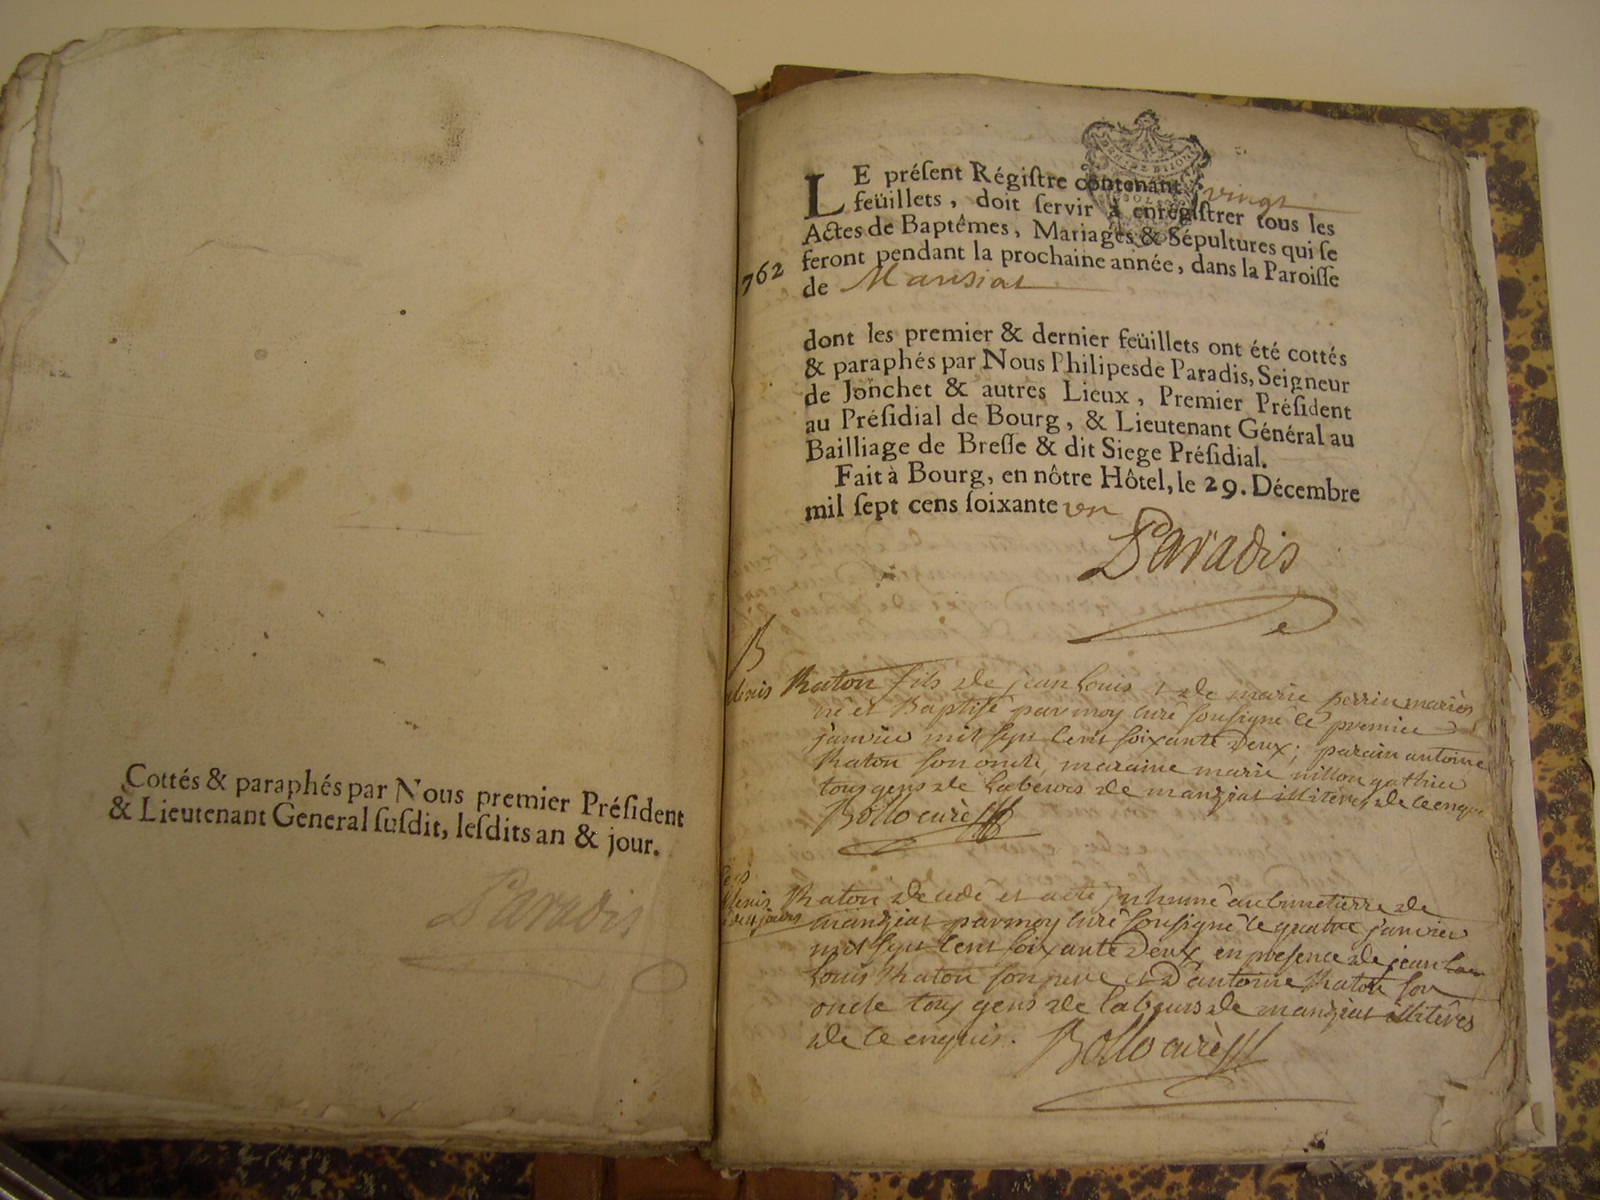 Cottés & paraphés par Nous premier Préſident
& Lieutenant General ſuſdit, leſdits an & jour.
Paradis
LE préſent Régiſtre contenant vingt
feüillets, doit ſervir à enregiſtrer tous les
Actes de Baptêmes, Mariages & Sépultures qui ſe
feront pendant la prochaine année, dans la Paroiſſe
762
de Mansiat
dont les premier & dernier feüillets ont été cottés
& paraphés par Nous Philipes de Paradis, Seigneur
de Jonchet & autres Lieux, Premier Préſident
au Préſidial de Bourg, & Lieutenant Général au
Bailliage de Breſſe & dit Siege Préſidial.
Fait à Bourg, en nôtre Hôtel, le 29. Décembre
mil ſept cens ſoixante un
Paradis
B
Raton fils de jean Louis et de marie perrin mariés
né et Baptisé par moy curé sousigné le premier
janvier mil sept cent soixante deux; parain antoine
Raton son oncle, maraine marie nillon gathier
tous gens de labeurs de manziat illiteres de ce enquis
Bollo curè
Raton decedé et a eté inhumé au cimetierre de
jours
manziat par moy curé sousigné le quatre janvier
mil sept cent soixante deux en presence de jean
Louis Raton son pere et d'antoine Raton son
oncle tous gens de labeurs de manziat illitérés
de ce enquis. Bollo curè